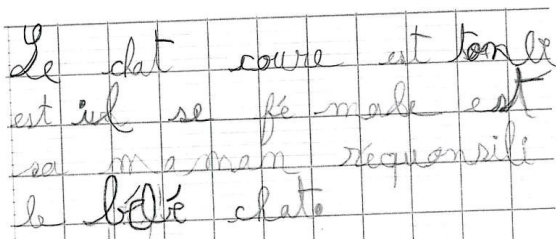 Le chat coure est tombé
est iul se fé male est
sa maman réquonsili
le bébé chat.